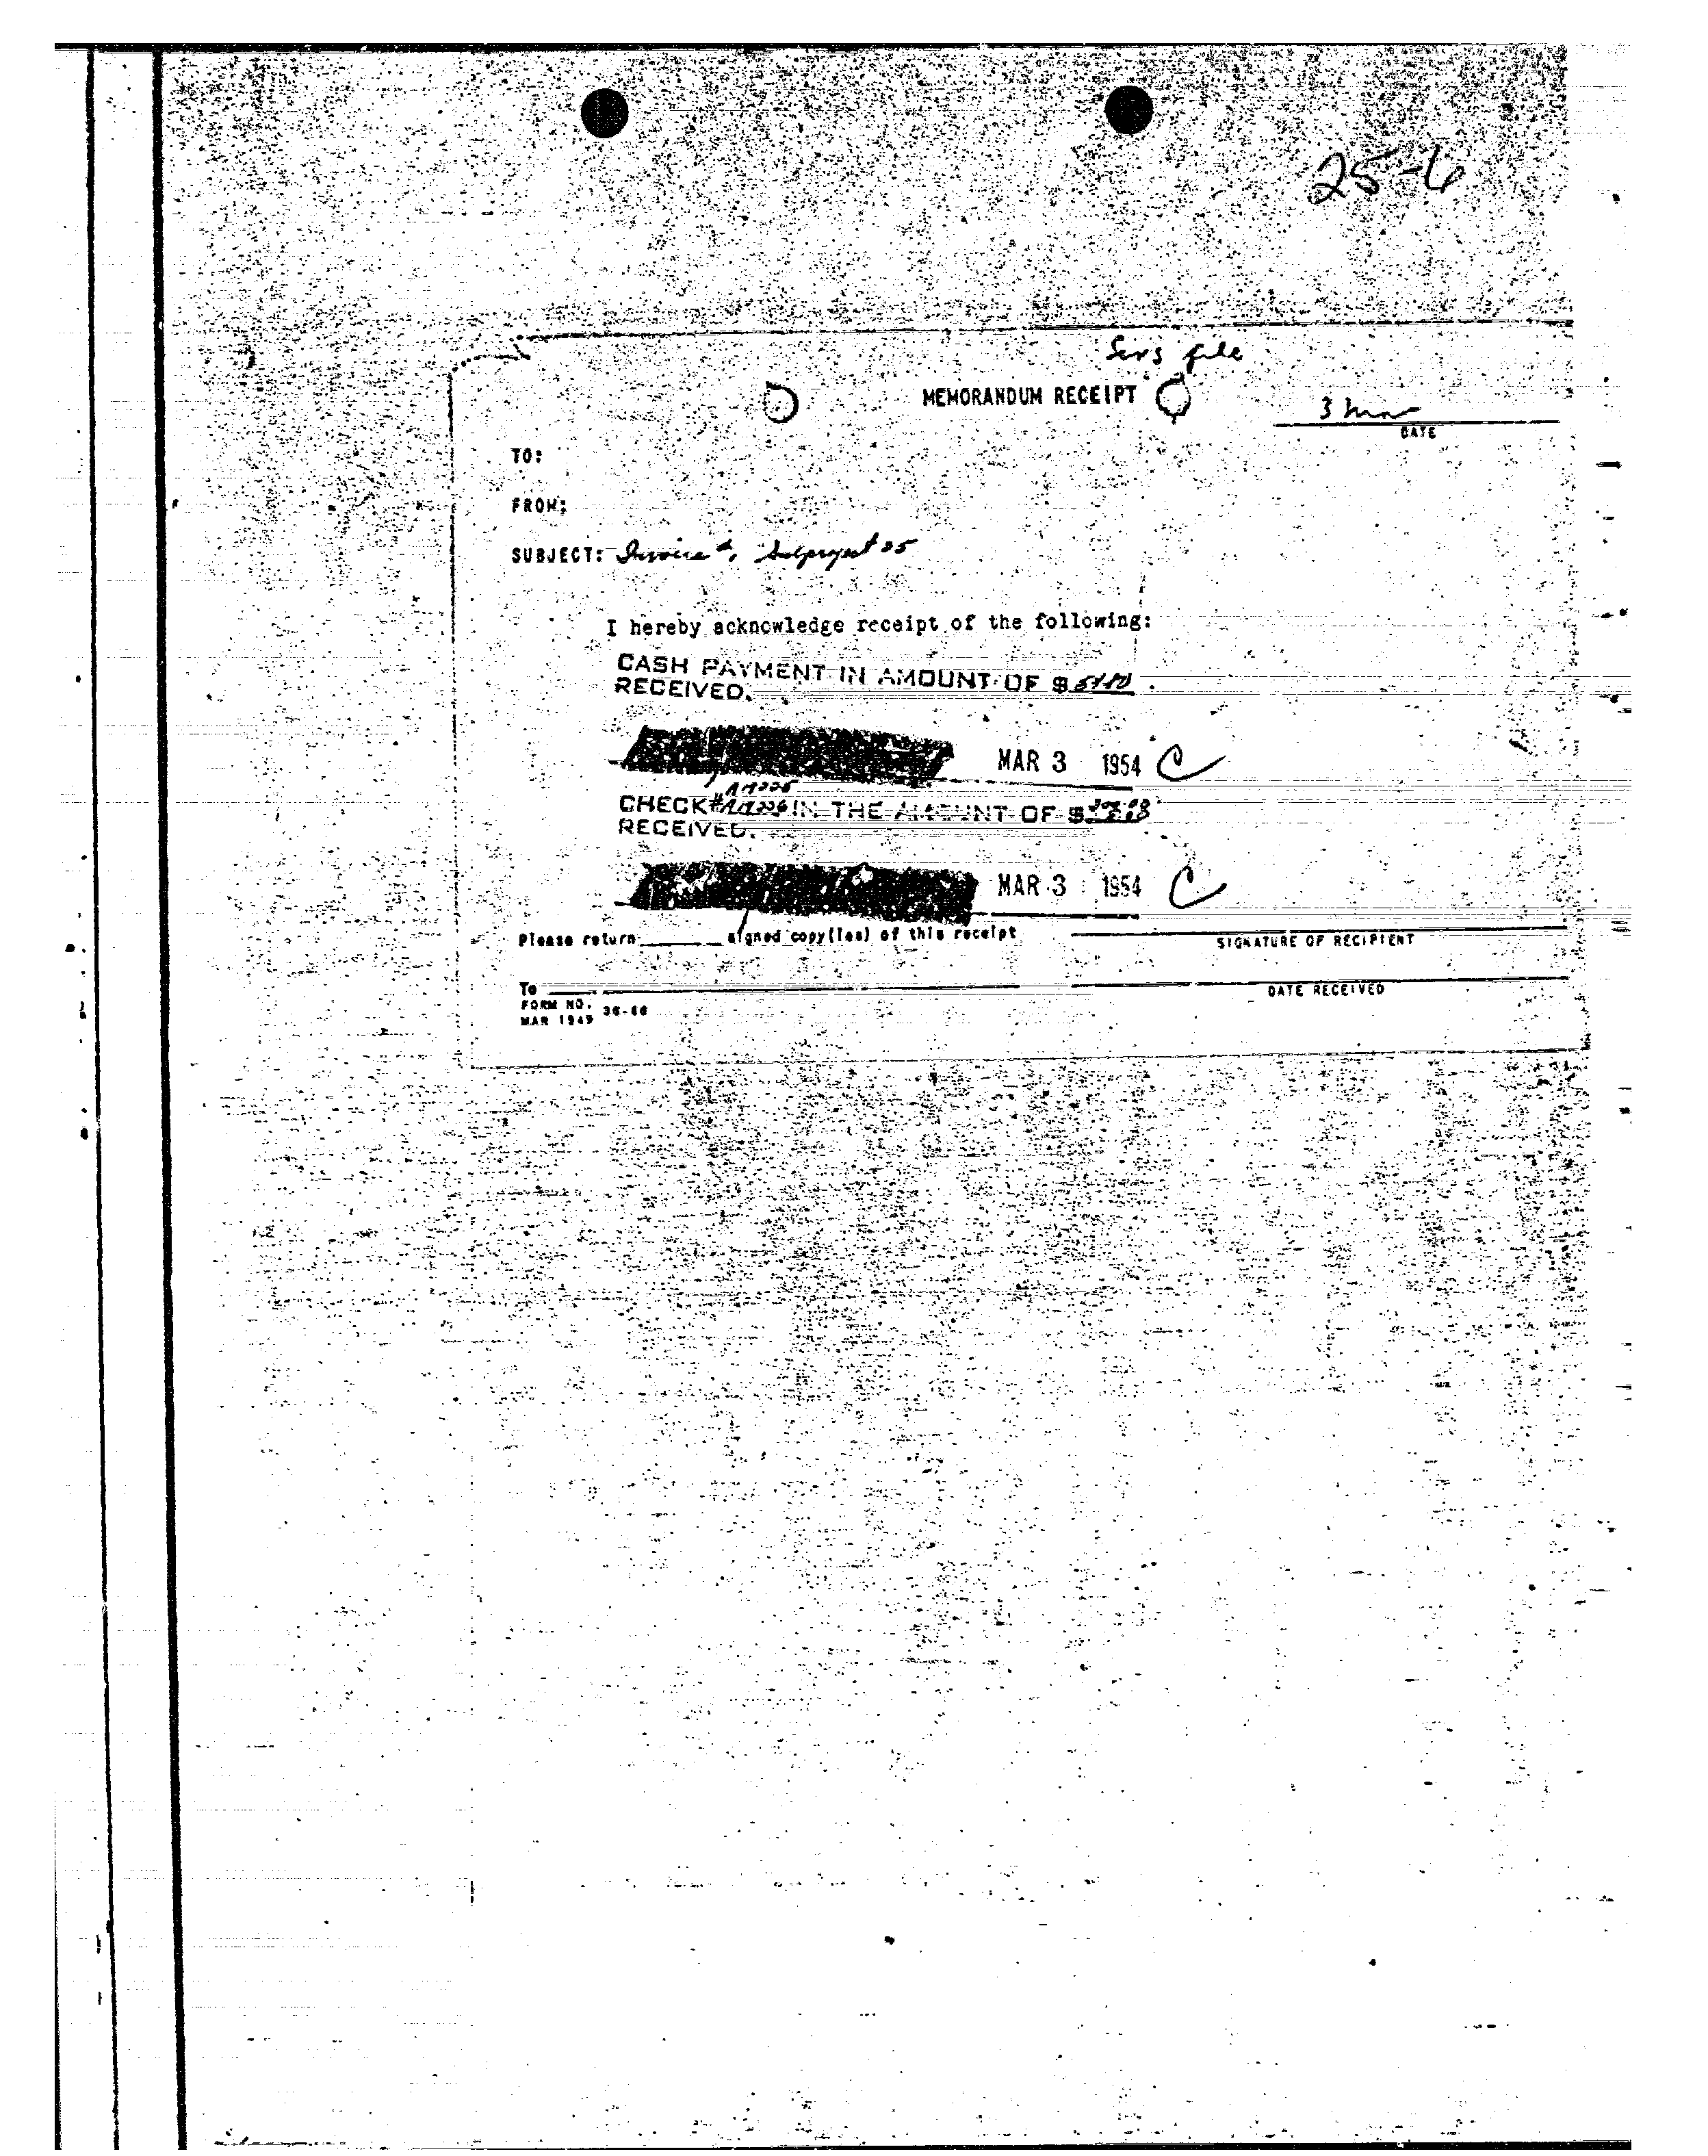 25-6
Sens file
MEMORANDUM RECEIPT
3 Mar
DATE
TO:
FROM:
SUBJECT: Invoice #, Subproject 25
I hereby acknowledge receipt of the following:
CASH PAYMENT IN AMOUNT OF $
RECEIVED.
MAR 3 1954 C
CHECK# IN THE AMOUNT OF $
RECEIVED.
MAR 3 1954 C
Please return signed copy(ies) of this receipt
SIGNATURE OF RECIPIENT
To
DATE RECEIVED
FORM NO. 36-66
MAR 1949